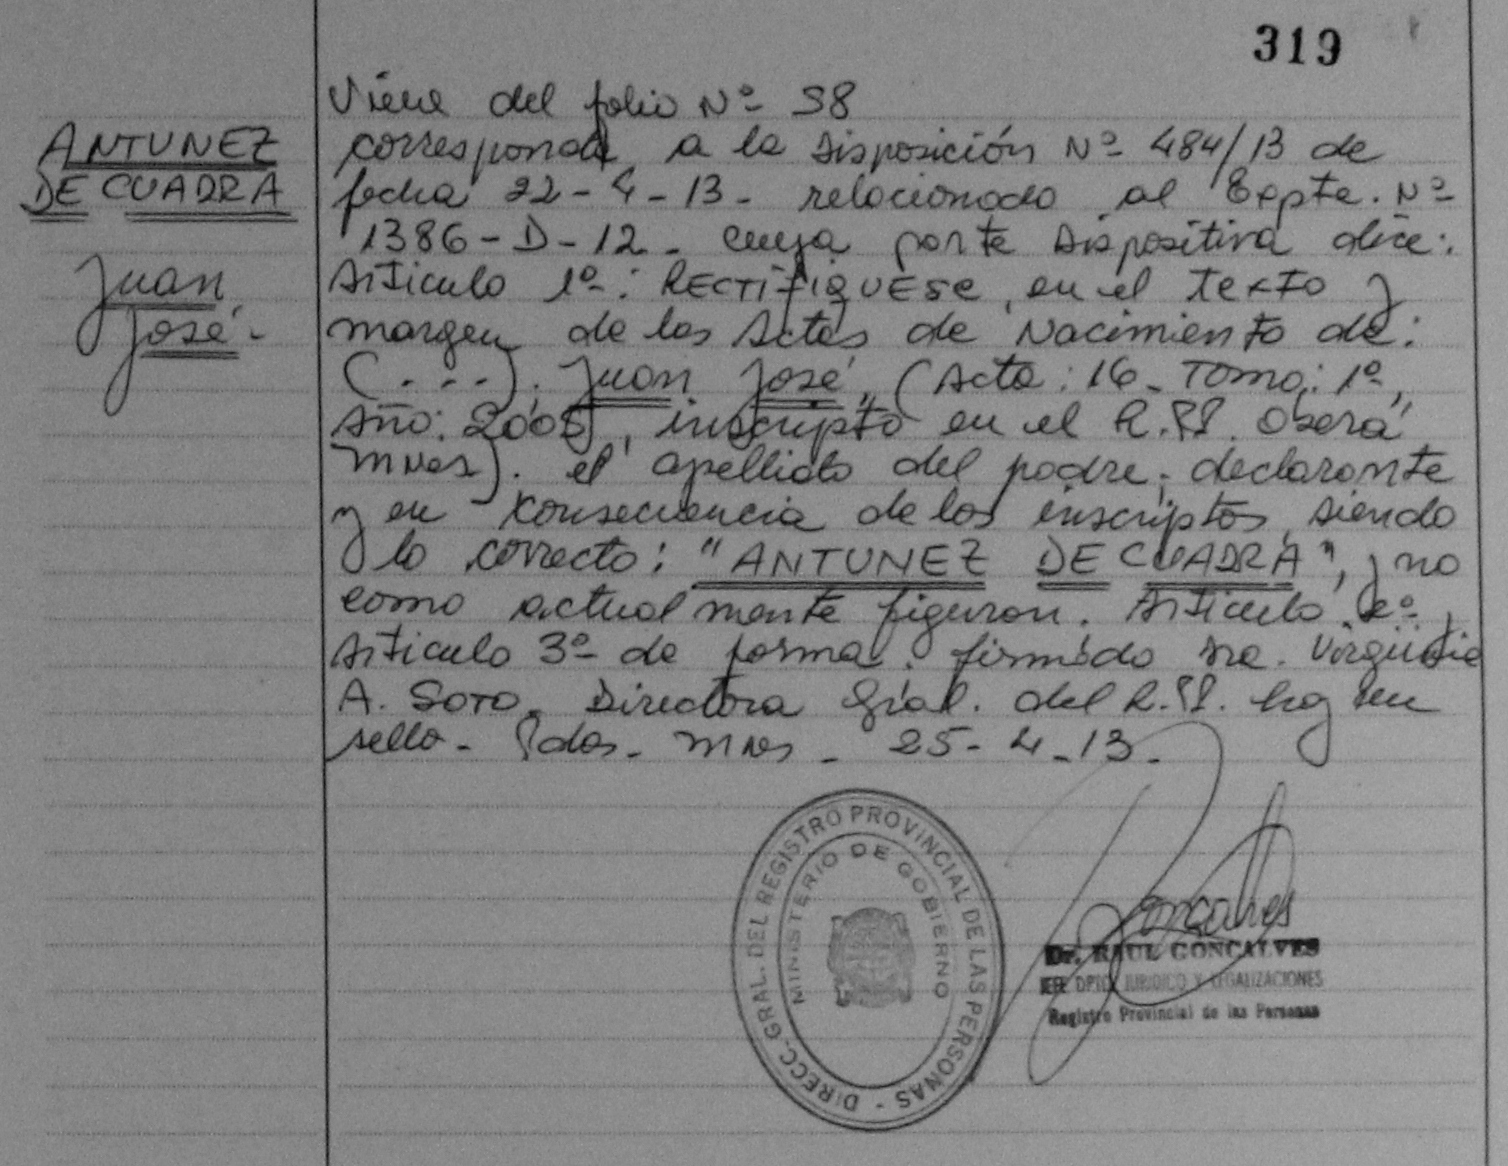 319
ANTUNEZ
DE CUADRA
Juan
José.-
Viene del folio Nº 58
corresponde a la Disposición Nº 484/13 de
fecha 22-4-13- relacionado al Expte. Nº
1386-D-12- cuya parte Dispositiva dice:
Articulo 1º: RECTIFIQUESE, en el Texto y
margen de las Actas de Nacimiento de:
(...). Juan José, (Acta: 16- Tomo: 1º,
Año: 2005, inscripto en el R.PP. Oberá
Mnes). el apellido del padre, declarante
y en consecuencia de los inscriptos, siendo
lo correcto: "ANTUNEZ DE CUADRA", y no
como actualmente figuran. Articulo 2º,
Articulo 3º de forma. firmado Dra.
A. SOTO, Directora Gral. del R.PP. hay un
sello- Pdas- Mnes - 25-4-13-
DIRECC. GRAL. DEL REGISTRO PROVINCIAL DE LAS PERSONAS -
MINISTERIO DE GOBIERNO
Goncalves
Dr. RAUL GONCALVES
JEFE DPTO. JURIDICO Y LEGALIZACIONES
Registro Provincial de las Personas